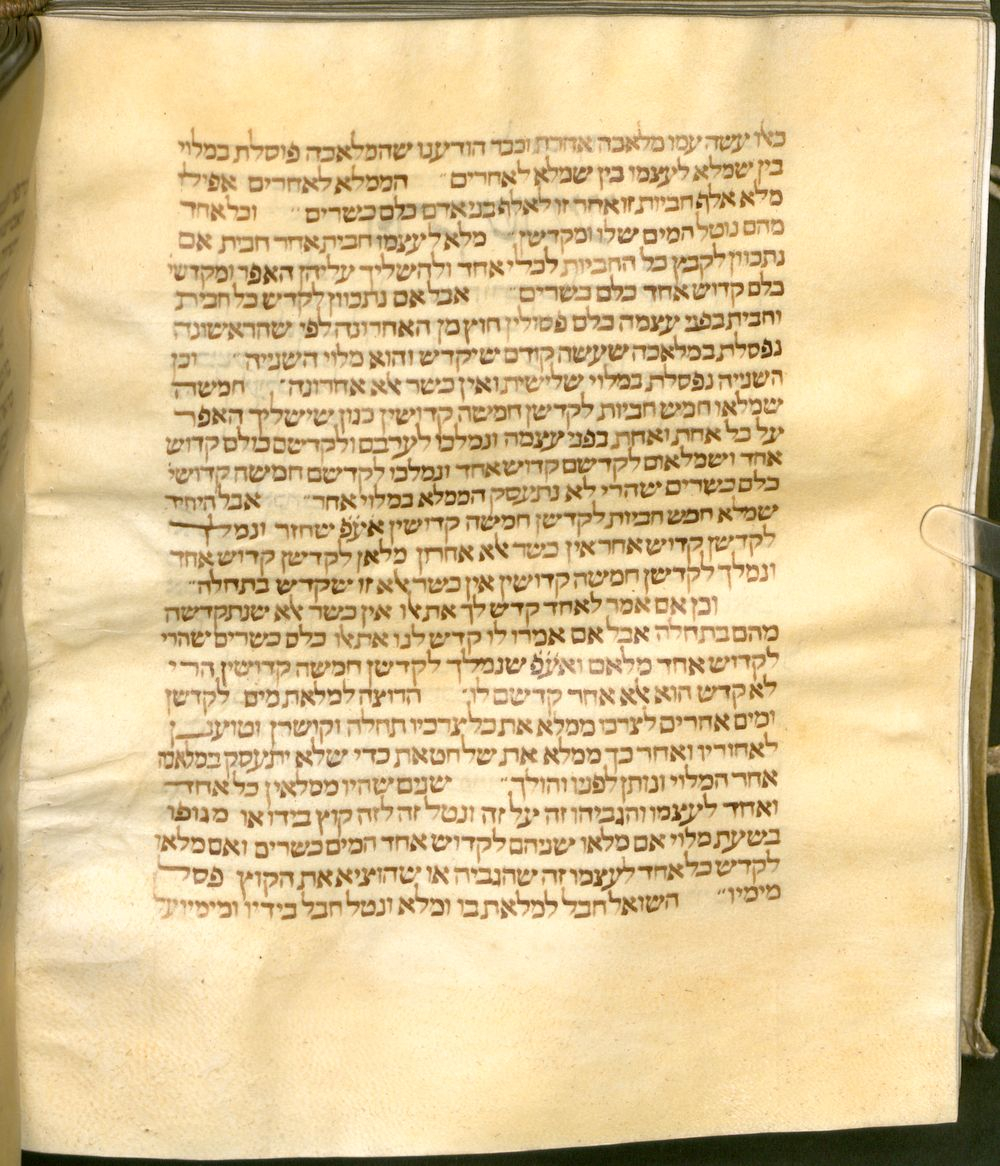 כאלו עשה עמו מלאכה אחרת וכבר הודענו שהמלאכה פוסלת במלוי
בין שמלא לעצמו בין שמלא לאחרים״ הממלא לאחרים אפילו
מלא אלף חביות זו אחר זו לאלף בני אדם כלם כשרים״ וכל אחד
מהם נוטל המים שלו ומקדשן״ מלא לעצמו חבית אחר חבית אם
נתכוון לקבץ כל החביות לכלי אחד ולהשליך עליהן האפר ומקדשי
כלם קדוש אחד כלם כשרים״ אבל אם נתכוון לקדש כל חבית
וחבית בפני עצמה כלם פסולין חוץ מן האחרונה לפי שהראשונה
נפסלת במלאכה שעשה קודם שיקדש והוא מלוי השנייה״ וכן
השניה נפסלת במלוי שלישית ואין כשר אלא אחרונה״ חמשה
שמלאו חמש חביות לקדשן חמשה קדושין כגון שישליך האפר
על כל אחת ואחת בפני עצמה ונמלכו לערבם ולקדשם כולם קדוש
אחד ושמלאום לקדשם קדוש אחד ונמלכו לקדשם חמשה קדושי
כלם כשרים שהרי לא נתעסק הממלא במלוי אחר״ אבל היחיד
שמלא חמש חביות לקדשן חמשה קדושין אע״פ שחזר ונמלך
לקדשן קדוש אחר אין כשר אלא אחרון מלאן לקדשן קדוש אחד
ונמלך לקדשן חמשה קדושין אין כשר אלא זו שקדש בתחלה״
וכן אם אמר לאחד קדש לך את אלו אין כשר אלא שנתקדשה
מהם בתחלה אבל אם אמרו לו קדש לנו את אלו כלם כשרים שהרי
לקדוש אחד מלאם ואע״פ שנמלך לקדשן חמשה קדושין הרי
לא קדש הוא אלא אחר קדשם לו״ הרוצה למלאת מים לקדשן
ומים אחרים לצרכו ממלא את כל צרכיו תחלה וקושרן וטוענן
לאחוריו ואחר כך ממלא את של חטאת כדי שלא יתעסק במלאכה
אחר המלוי ונותן לפניו והולך״ שנים שהיו ממלאין כל אחד
ואחד לעצמו והגביהו זה על זה ונטל זה לזה קוץ בידו או מגופו
בשעת מלוי אם מלאו שניהם לקדוש אחד המים כשרים ואם מלאו
לקדש כל אחד לעצמו זה שהגביה או שהוציא את הקוץ פסל
מימיו״ השואל חבל למלאת בו ומלא ונטל חבל בידיו ומימיו על